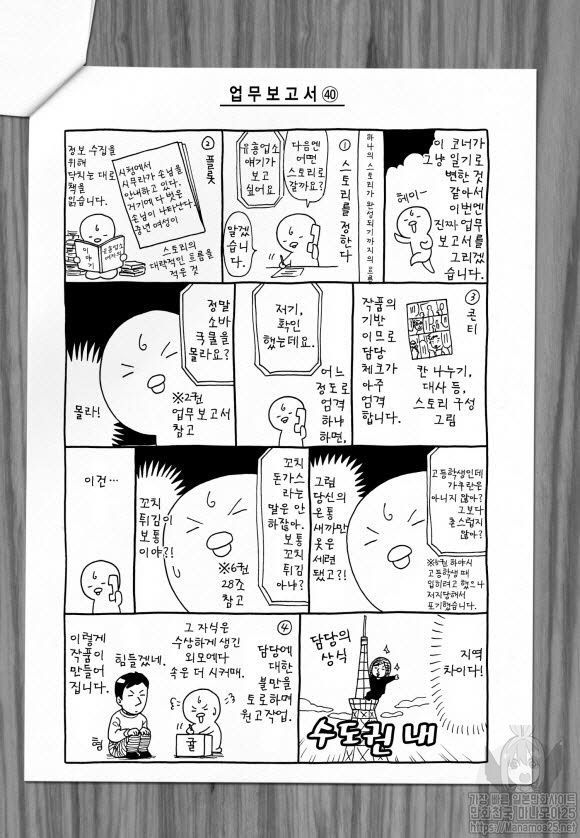 업무보고서㊵
이 코너가
그냥 일기로
변한 것
같아서
이번엔
진짜 업무
보고서를
그리겠
습니다.
헤이―
하나의 스토리가 완성되기까지의 흐름
① 스토리를 정한다
다음엔
어떤
스토리로
갈까요?
유흥업소
얘기가
보고
싶어요
알겠
습니다.
② 플롯
시청에서
시무라가 손님을
안내하고 있다.
거기에 다 벗은
손님이 나타난다.
중년 여성이
스토리의
대략적인 흐름을
적은 것
정보 수집을
위해
닥치는 대로
책을
읽습니다.
유흥업소
여자의
이야기
③ 콘티
칸 나누기,
대사 등,
스토리 구성
그림
작품의
기반
이므로
담당
체크가
아주
엄격
합니다.
어느
정도로
엄격
하냐
하면,
저기,
확인
했는데요.
정말
소바
국물을
몰라요?
※2권
업무보고서
참고
몰라!
고등학생인데
가쿠란은
아니지 않아?
그보다
촌스럽지
않아?
※6권 하야시
고등학생 때
입히려고 했으나
저지당해서
포기했습니다.
그럼
당신의
온통
새까만
옷은
세련
됐고?!
꼬치
돈가스
라는
말은 안
하잖아.
보통
꼬치
튀김
아냐?
※6권
28조
참고
꼬치
튀김이
보통
이야?!
이건…
지역
차이다!
담당의
상식
수도권 내
④
담당에
대한
불만을
토로하며
원고작업.
그 자식은
수상하게 생긴
외모에다
속은 더 시커매.
귤
힘들겠네.
형
이렇게
작품이
만들어
집니다.
가장 빠른 일본만화사이트
만화천국 마나모아25
https://Manamoa25.net